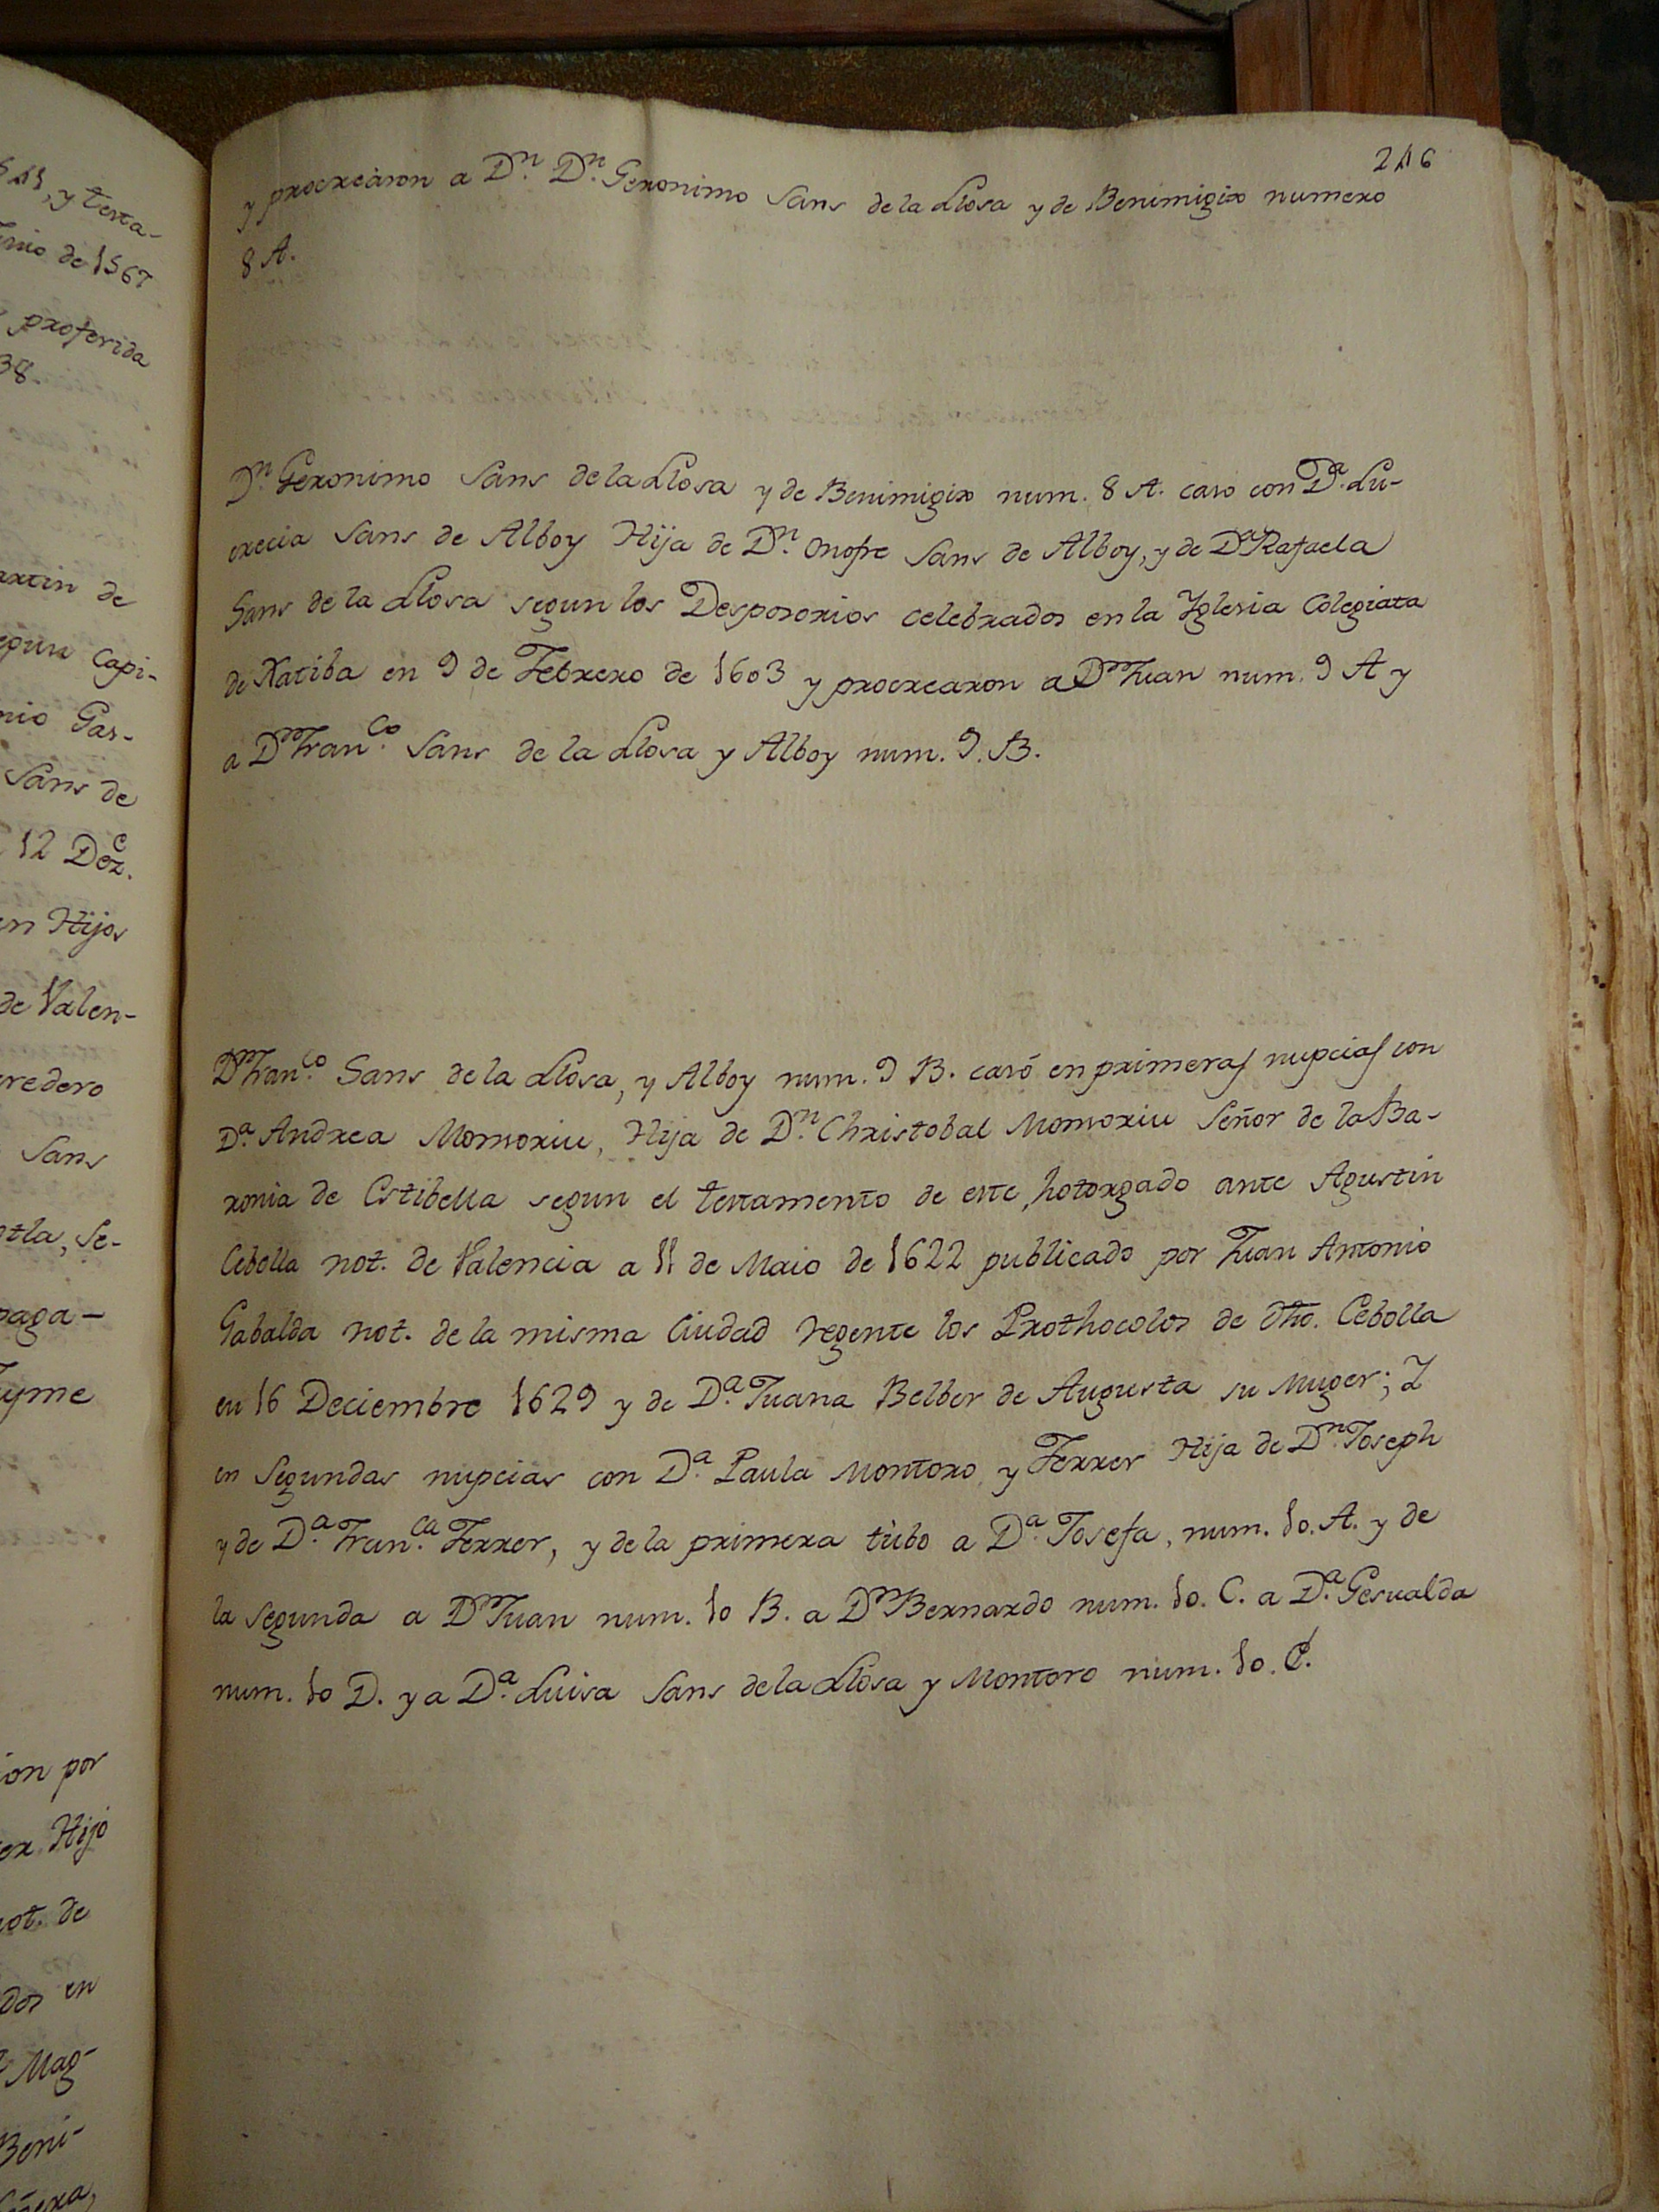 5 11, y testa-
Junio de 1567
proferida
38.
artin de
egun Capi-
nio Gas-
Sans de
12 Dez.e
en Hijos
de Valen-
eredero
Sans
otla, Se-
paga-
ayme
ion por
er Hijo
not. de
dos en
Mag-
Beni-
246
y procrearon a Dn. Dn. Geronimo Sans de la Llosa y de Benimigix numero
8 A.
Dn. Geronimo Sans de la Llosa y de Benimigix num. 8 A. caso con Da. Lu-
crecia Sans de Alboy Hija de Dn. Onofre Sans de Alboy, y de Da. Rafaela
Sans de la Llosa segun los Desposorios celebrados en la Yglesia Colegiata
de Xatiba en 9 de Febrero de 1603 y procrearon a Dn. Juan num. 9 A y
a Dn. Fran.co Sans de la Llosa y Alboy num. 9. B.
Dn. Fran.co Sans de la Llosa, y Alboy num. 9 B. casó en primeras nupcias con
Da. Andrea Monsoriu, Hija de Dn. Christobal Monsoriu Señor de la Ba-
ronia de Estibella segun el testamento de este, hotorgado ante Agustin
Cebolla not. de Valencia a 11 de Maio de 1622 publicado por Juan Antonio
Gabalda not. de la misma Ciudad regente los Prothocolos de dho. Cebolla
en 16 Deciembre 1629 y de Da. Juana Belber de Augusta su Muger; Y
en Segundas nupcias con Da. Paula Montoro, y Ferrer Hija de Dn. Joseph
y de Da. Fran.ca Ferrer, y de la primera tubo a Da. Josefa, num. 10. A. y de
la segunda a Dn. Juan num. 10 B. a Dn. Bernardo num. 10. C. a Da. Gesualda
num. 10 D. y a Da. Luisa Sans de la Llosa y Montoro num. 10. E.